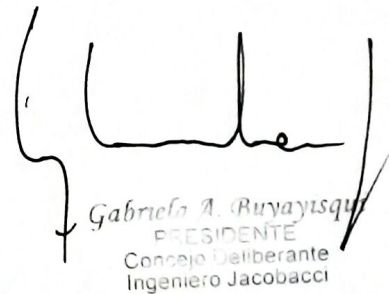 Gabriela A. Buyayisqui
PRESIDENTE
Concejo Deliberante
Ingeniero Jacobacci